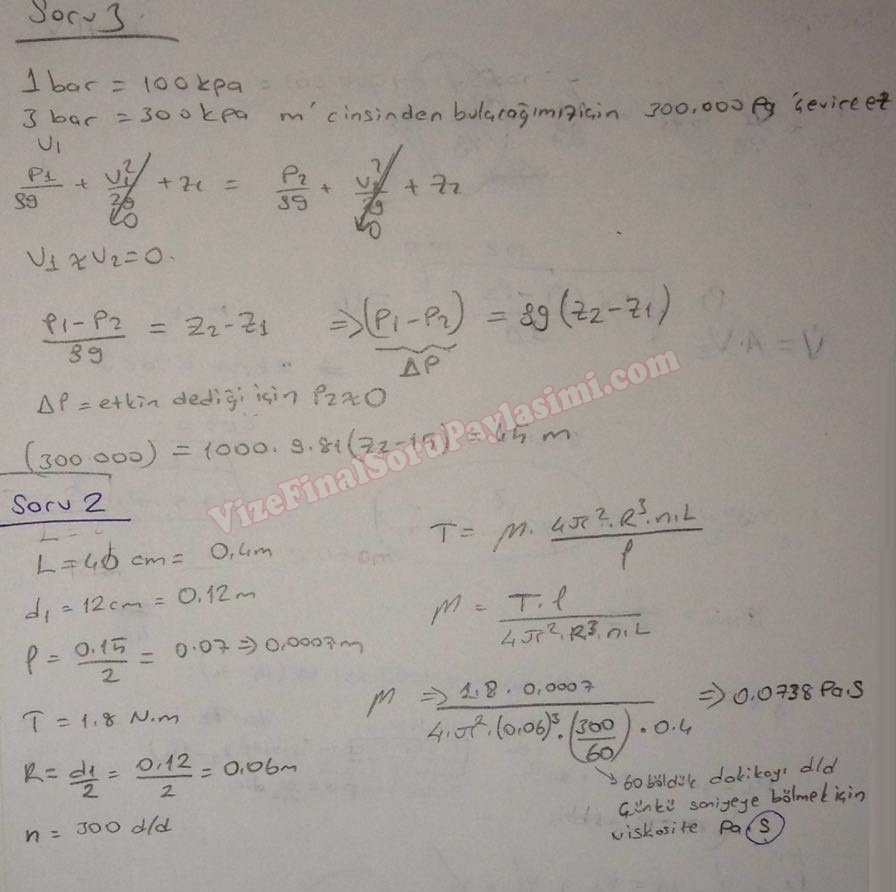 Soru 3
1 bar = 100 kpa
3 bar = 300 kpa m' cinsinden bulacağımız için 300.000 Pa çevirecez
V1
P1/ρg + V1²/2g→0 + z1 = P2/ρg + V2²/2g→0 + z2
V1 ≈ V2 = 0.
(P1-P2)/ρg = z2-z1 ⇒ (P1-P2) = ρg(z2-z1)
ΔP
ΔP = etkin dediği için P2≈0
(300.000) = 1000. 9.81(z2-15) = 45 m
VizeFinalSoruPaylasimi.com
Soru 2
L =
L = 40 cm = 0.4m
d1 = 12cm = 0.12m
ℓ = 0.15/2 = 0.07 ⇒ 0.0007m
T = 1.8 N.m
R = d1/2 = 0.12/2 = 0.06m
n = 300 d/d
T = μ. 4π².R³.n.L/ℓ
μ = T.ℓ/4π².R³.n.L
μ ⇒ 1.8 . 0.0007/4.π².(0.06)³.(300/60).0.4 ⇒ 0.0738 Pa.S
→ 60 böldük dakikayı d/d
Çünkü saniyeye bölmek için
viskosite Pa.S